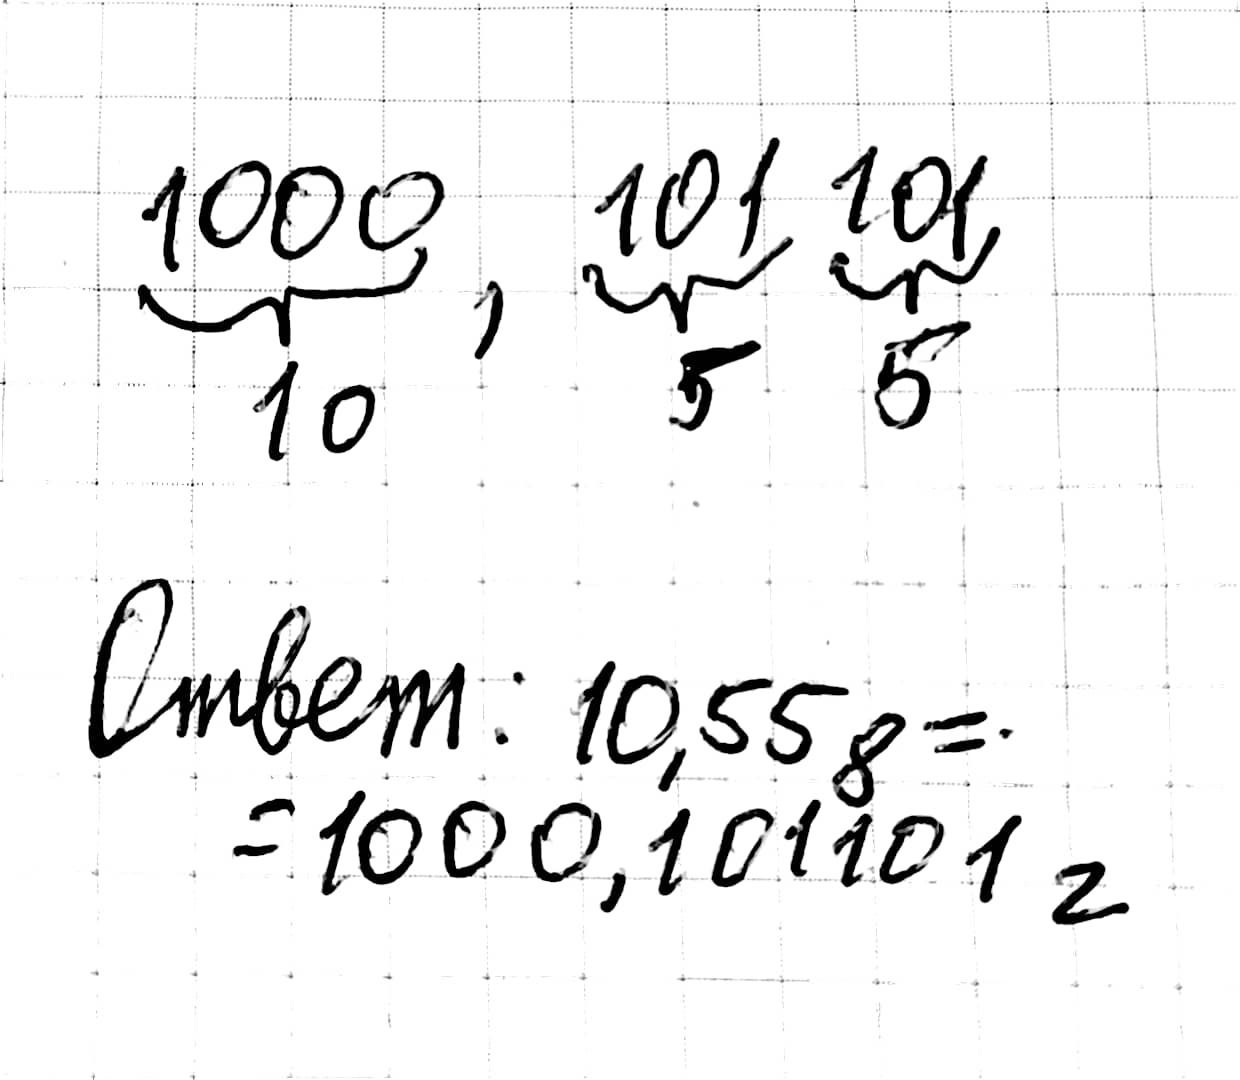 1000, 101 101
10 5 5
Ответ: 10,55 8 =
= 1000,101101 2